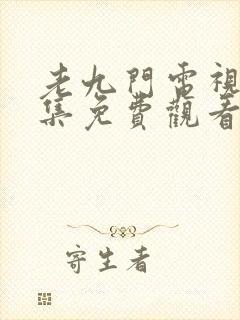 老九門電視
集免費觀看
寄生者